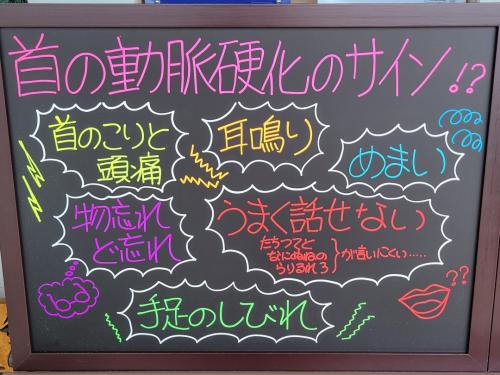 首の動脈硬化のサイン!?
首のこりと
頭痛
耳鳴り
めまい
物忘れ
ど忘れ
うまく話せない
たちつてと
なにぬねの
らりるれろ
が言いにくい.....
手足のしびれ
??